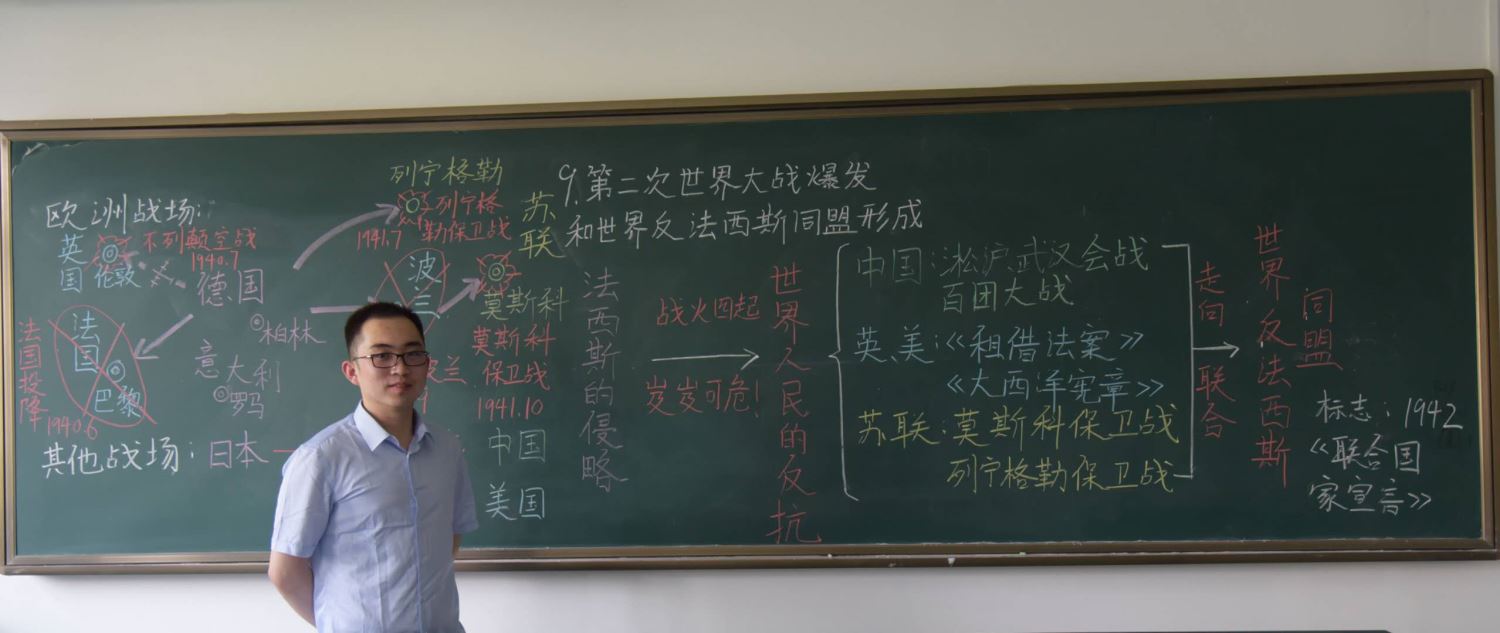 9.第二次世界大战爆发
和世界反法西斯同盟形成
欧洲战场:
英国
伦敦
不列颠空战
1940.7
德国
柏林
法国
巴黎
法国投降
1940.6
意大利
罗马
列宁格勒
列宁格
勒保卫战
1941.7
苏联
波兰
莫斯科
莫斯科
保卫战
1941.10
其他战场:日本
中国
美国
法西斯的侵略
战火四起
岌岌可危!
世界人民的反抗
中国:淞沪、武汉会战
百团大战
英、美:《租借法案》
《大西洋宪章》
苏联:莫斯科保卫战
列宁格勒保卫战
走向联合
世界反法西斯
同盟
标志:1942
《联合国
家宣言》